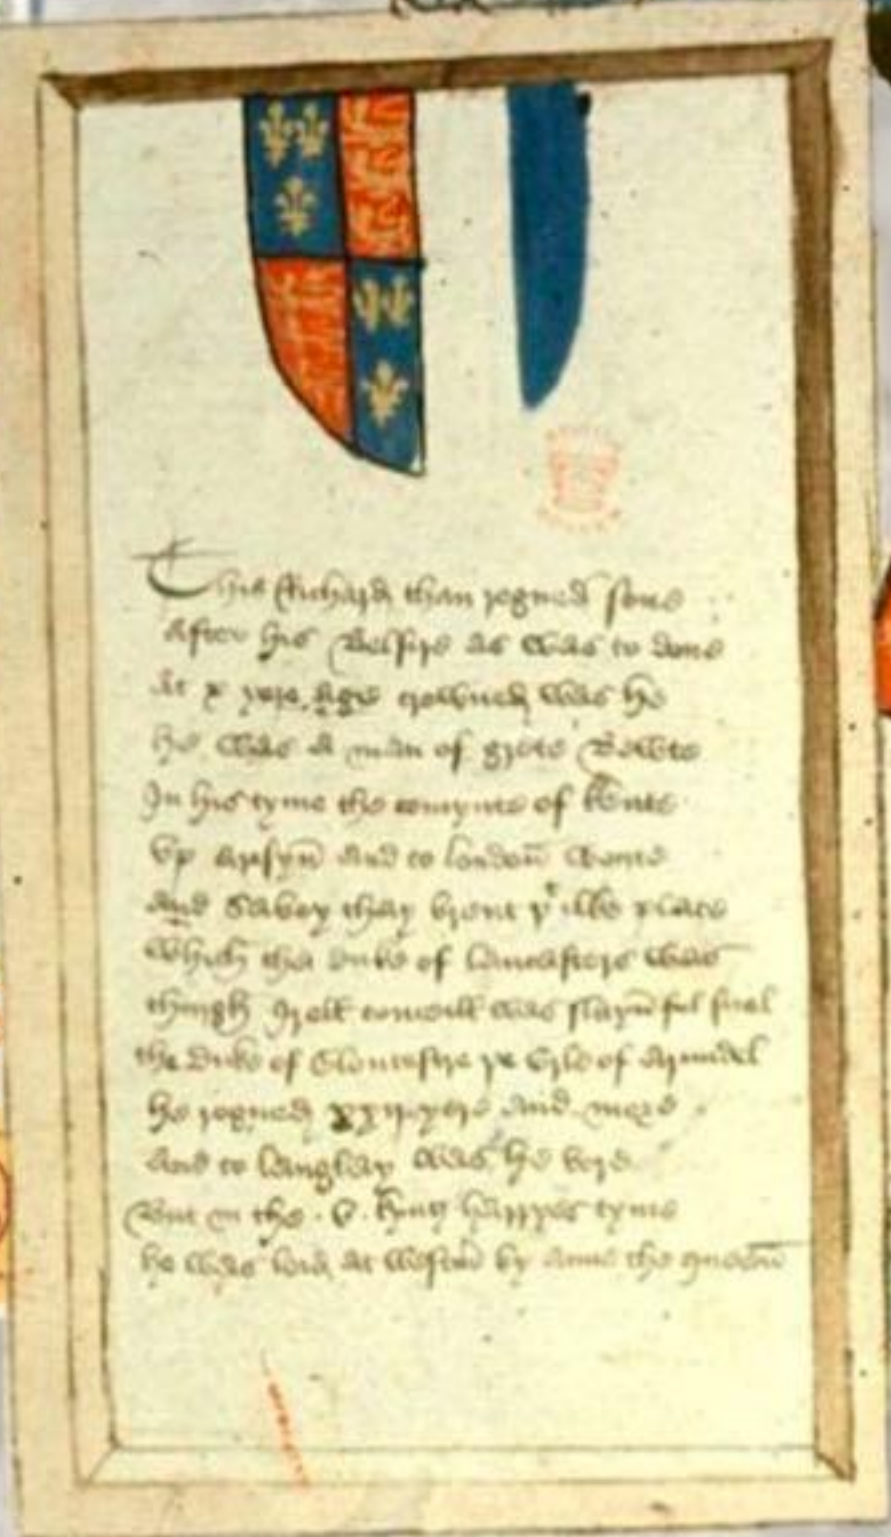 This Richard than regned sone
After his Belsire as was to done
At x yere age crowned was he
he was a man of grete Bewte
In his tyme the comyns of kente
Vp arisyn and to london wente
And Savoy thay brent þt ilke place
which the duke of lancastere was
thurgh counsill was slayn ful snel
the Duke of Gloucestre þe Erle of Arundel
he regned xxij yere and more
And to langley was he bore
But in the . v . kyng harryes tyme
he was leid at westm by Anne the queen